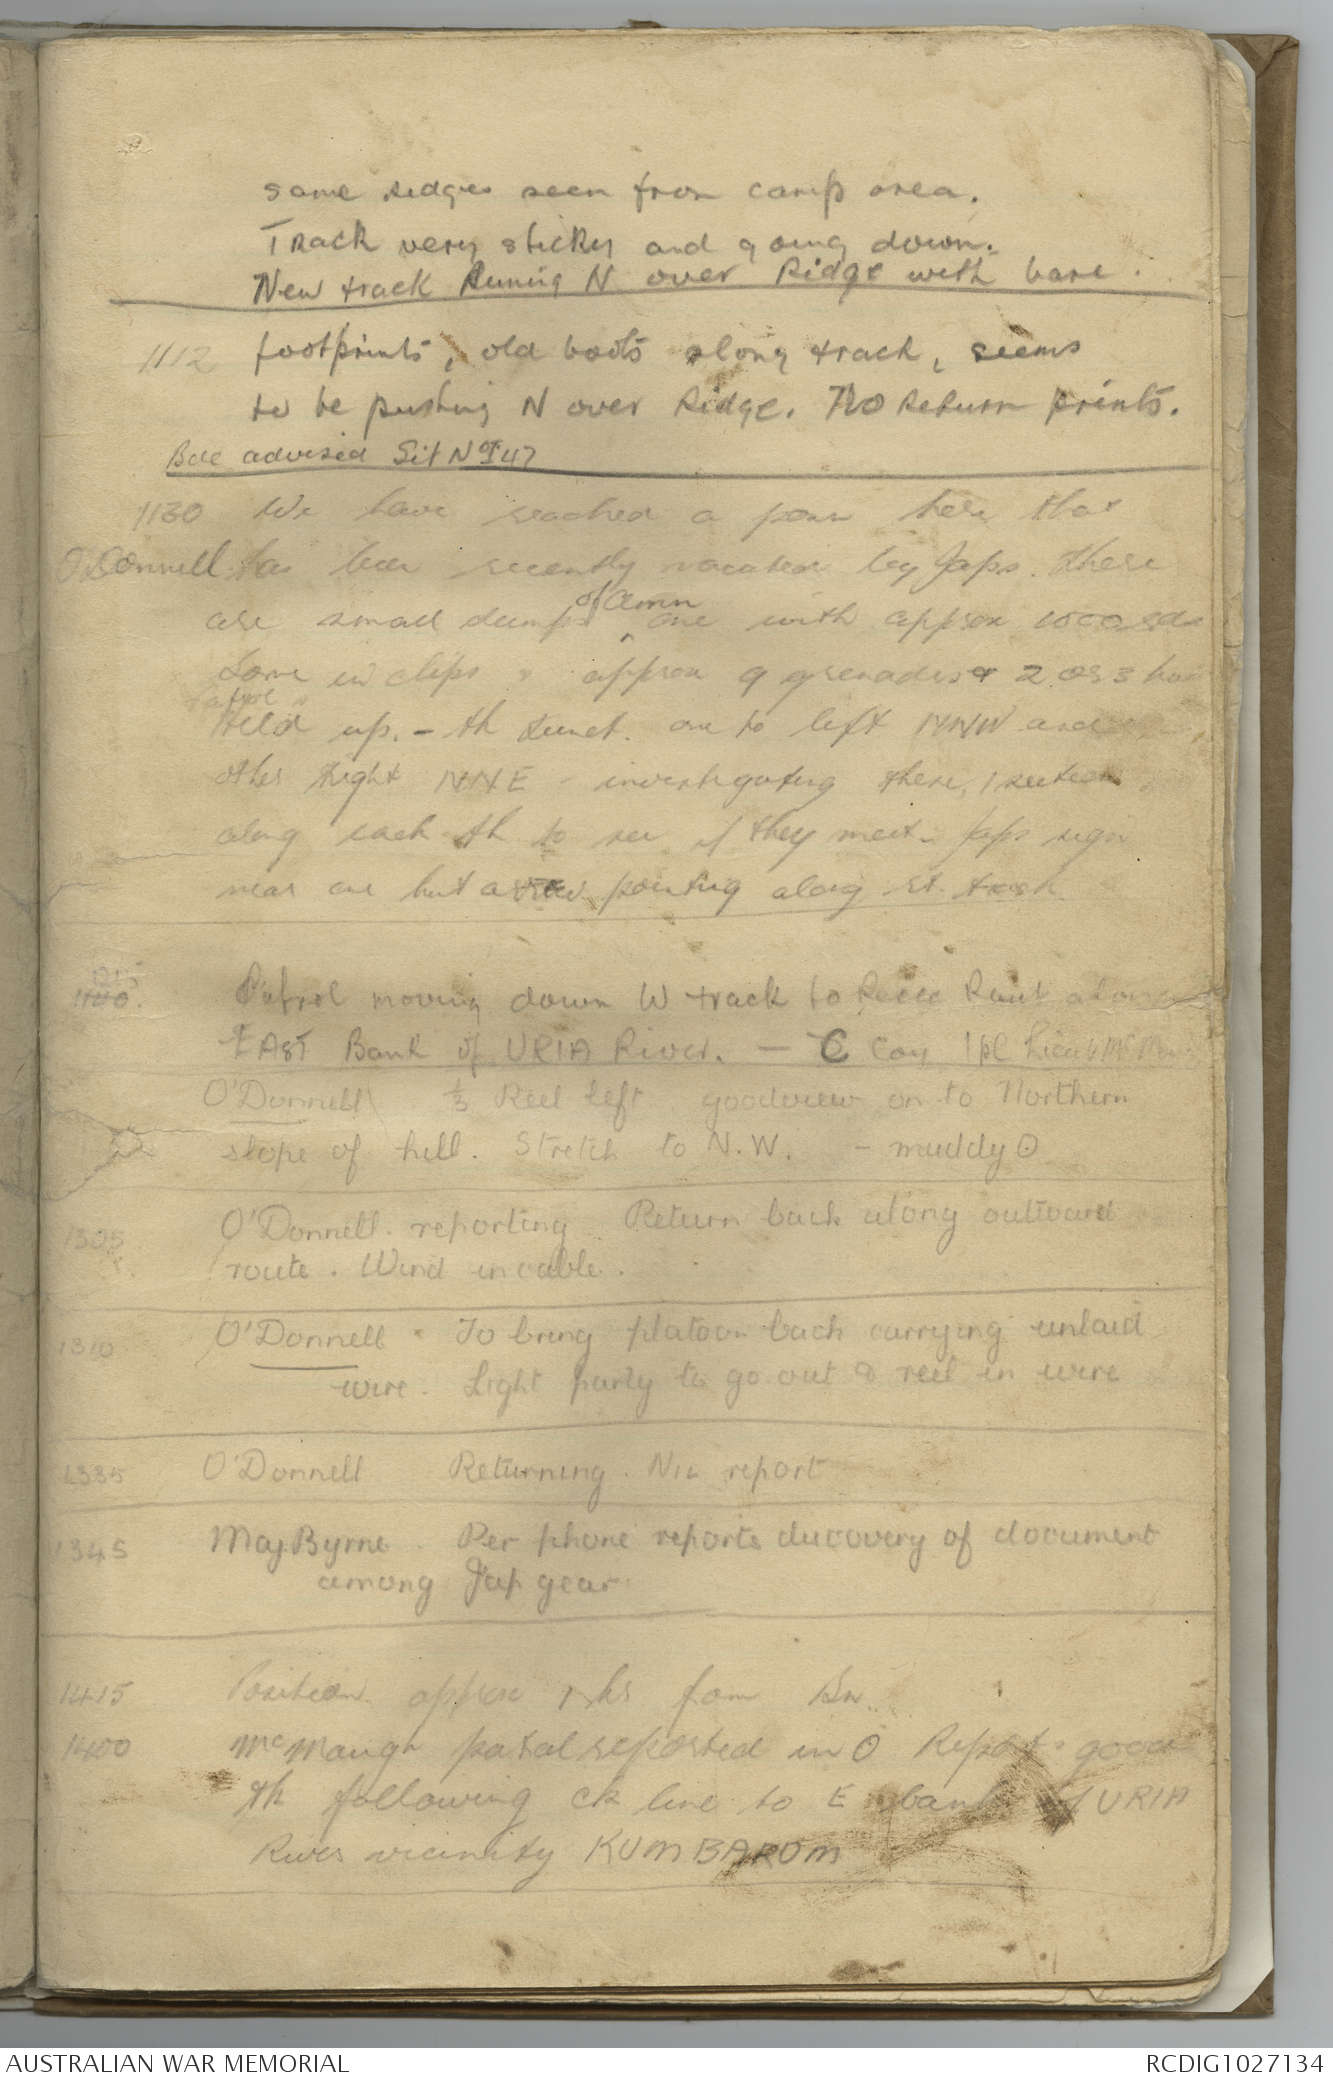 same ridges seen from camp area.
Track very sticky and going down.
New track Runing N over Ridge with bare
1112 footprints, old boots along track, seems
to be pushing N over Ridge. No Return prints.
Bde advised Sit No I 47
1130 We have reached a posn here that
O'Donnell has been recently vacated by Japs. There
are small dumps of amn one with approx 1000 rds
Some in clips " approx 9 grenades & 2 or 3
Patrol
Held up. - tk junct. one to left NNW and
other Right NNE - investigating there, 1 section
along each tk to see if they meet. Japs sign
near one hut arrow pointing along rt. track
1140. Patrol moving down W track to Recce along
EAST Bank of URIA River. - C Coy 1 pl Lieut
O'Donnell ⅓ Reel left good view on to Northern
slope of hill. Stretch to N.W. - muddy
1305 O'Donnell. reporting Return back along outward
route. Wind in cable.
1310 O'Donnell To bring platoon back carrying unlaid
wire. Light party to go out & reel in wire
1335 O'Donnell Returning. Nil report
1345 Maj Byrne. Per phone reports discovery of document
among Jap gear
1415 Position approx hrs from Bn.
1400 McMaugh patrol reported in O Report good
tk following ck line to E bank of URIA
River vicinity KUMBAROM
AUSTRALIAN WAR MEMORIAL
RCDIG1027134